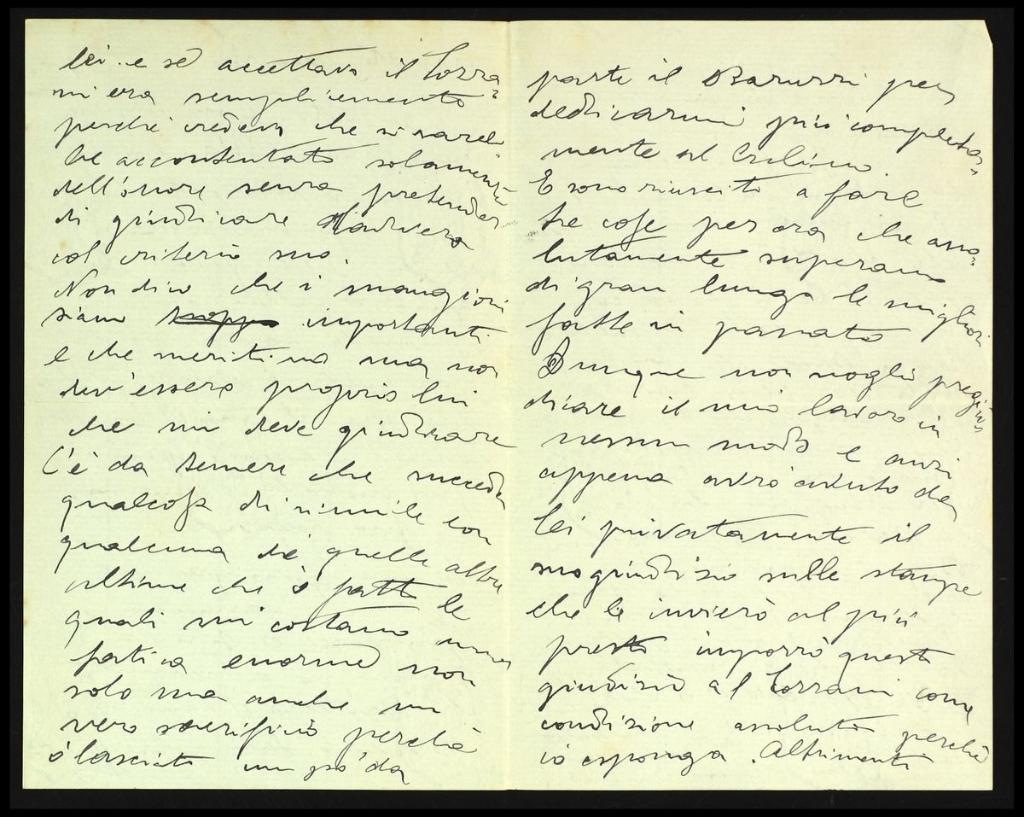 lei e se accettavo il Torra=
ni era semplicemente
perchè credevo che si sareb
be accontentato solamente
dell'onore senza pretender
di giudicare davvero
col criterio suo.
Non dico che i mangiori
siano troppo importanti
e che meritino ma non
dev'essere proprio lui
che mi deve giudicare
C'è da temere che succeda
qualcosa di simile con
qualcuna di quelle altre
ultime che ò fatto le
quali mi costano una
fatica enorme non
solo ma anche un
vero sacrificio perchè
ò lasciato un po' da
parte il Baruzzi per
dedicarmi più completa=
mente al
E sono riuscito a fare
tre cose per ora che asso=
lutamente superano
di gran lunga le migliori
fatte in passato
Dunque non voglio pregiu=
dicare il mio lavoro in
nessun modo e anzi
appena avrò avuto da
lei privatamente il
suo giudizio sulle stampe
che le invierò al più
presto imporrò questo
giudizio al Torrani come
condizione assoluta perchè
io esponga. Altrimenti